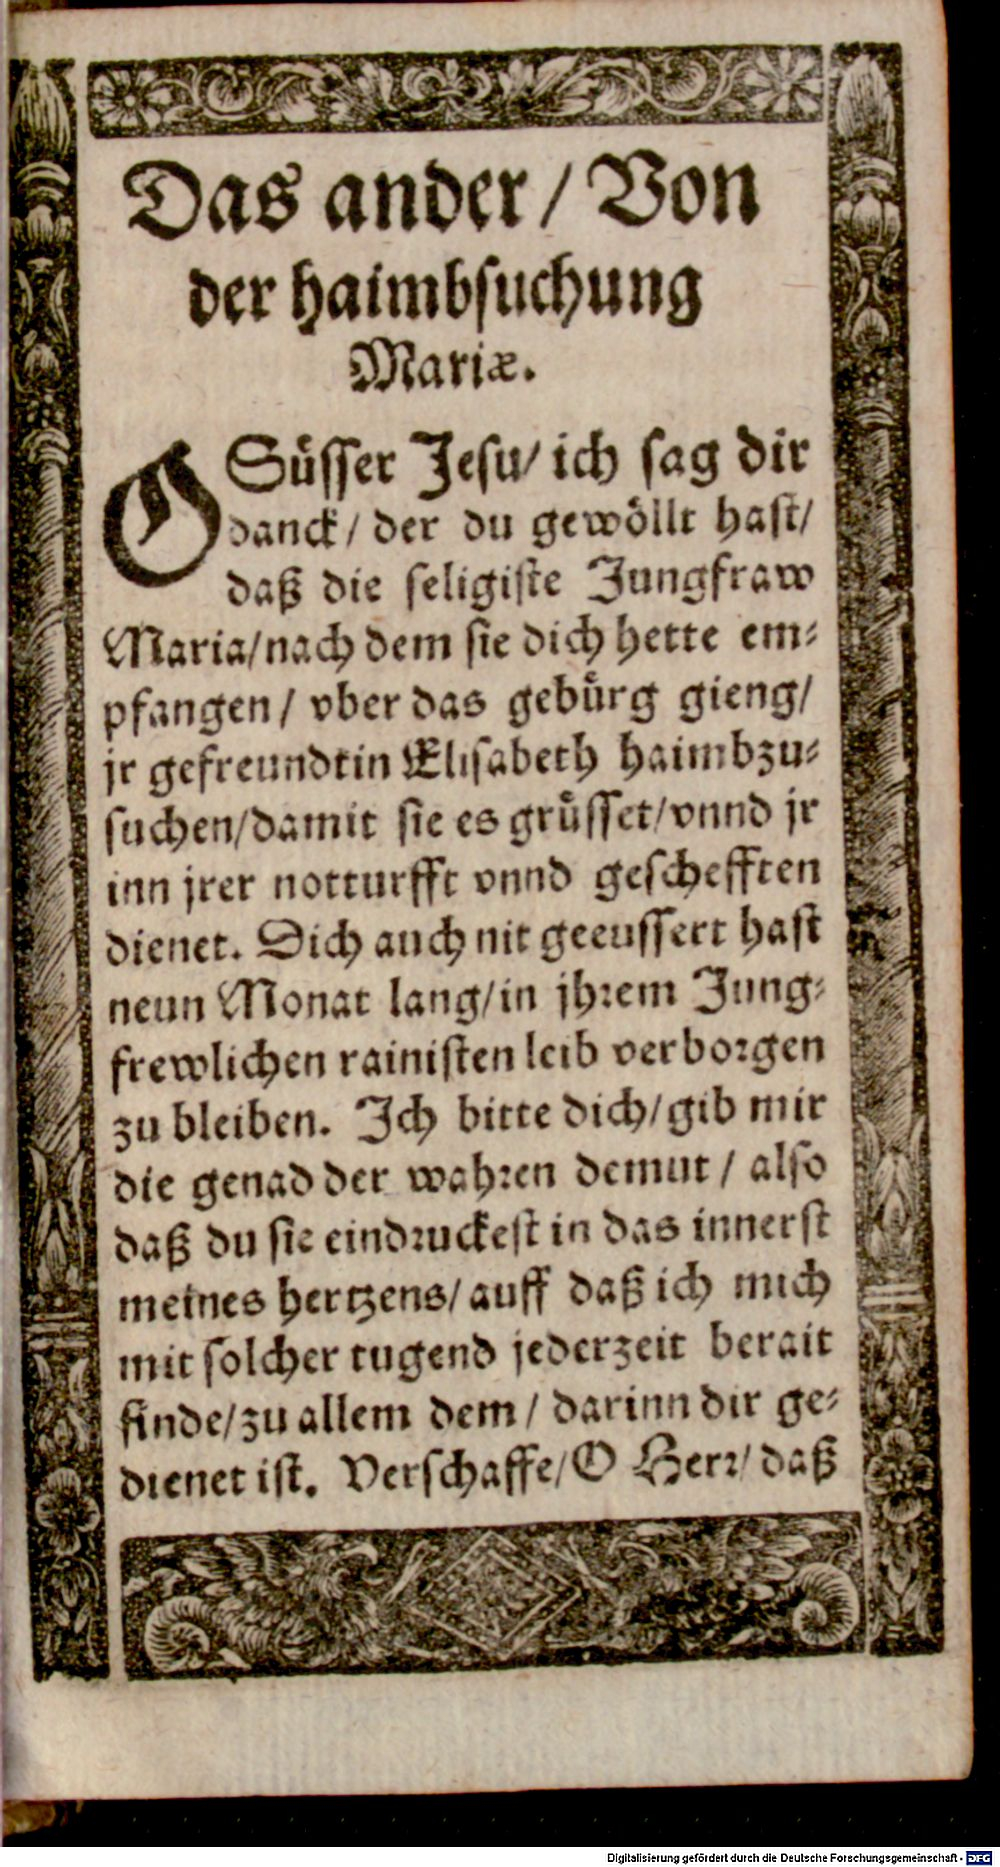 Das ander / Von
der haimbsuchung
Mariæ.
O Süsser Jesu / ich sag dir
danck / der du gewöllt hast /
daß die seligiste Jungfraw
Maria / nach dem sie dich hette em-
pfangen / vber das gebürg gieng /
jr gefreundtin Elisabeth haimbzu-
suchen / damit sie es grüsset / vnnd jr
inn jrer notturfft vnnd geschefften
dienet. Dich auch nit geeussert hast
neun Monat lang / in jhrem Jung-
frewlichen rainisten leib verborgen
zu bleiben. Ich bitte dich / gib mir
die genad der wahren demut / also
daß du sie eindruckest in das innerst
meines hertzens / auff daß ich mich
mit solcher tugend jederzeit berait
finde / zu allem dem / darinn dir ge-
dienet ist. Verschaffe / O Herr / daß
Digitalisierung gefördert durch die Deutsche Forschungsgemeinschaft - DFG